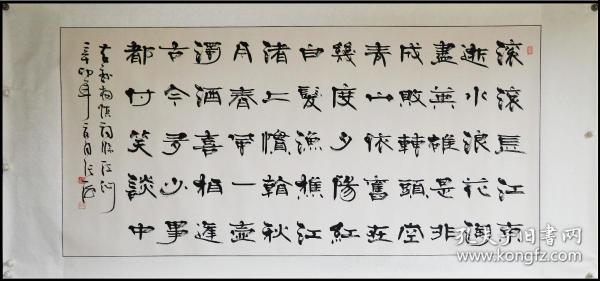 滚滚長江東
逝水浪花淘
盡英雄是非
成敗轉頭空
青山依舊在
幾度夕陽紅
白髮漁樵江
渚上慣看秋
月春風一壺
濁酒喜相逢
古今多少事
都付笑談中
右錄楊慎詞臨江仙
辛卯年
孔夫子旧书网
www.kongfz.com